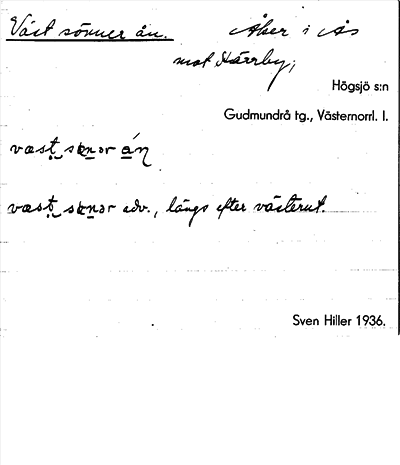 Väst sönner ån. Åker i Ås
mot Härrby;
Högsjö s:n
Gudmundrå tg., Västernorrl. l.
væsṭ sɶnər án
væsṭ sɶnər adv., längs efter västerut.
Sven Hiller 1936.